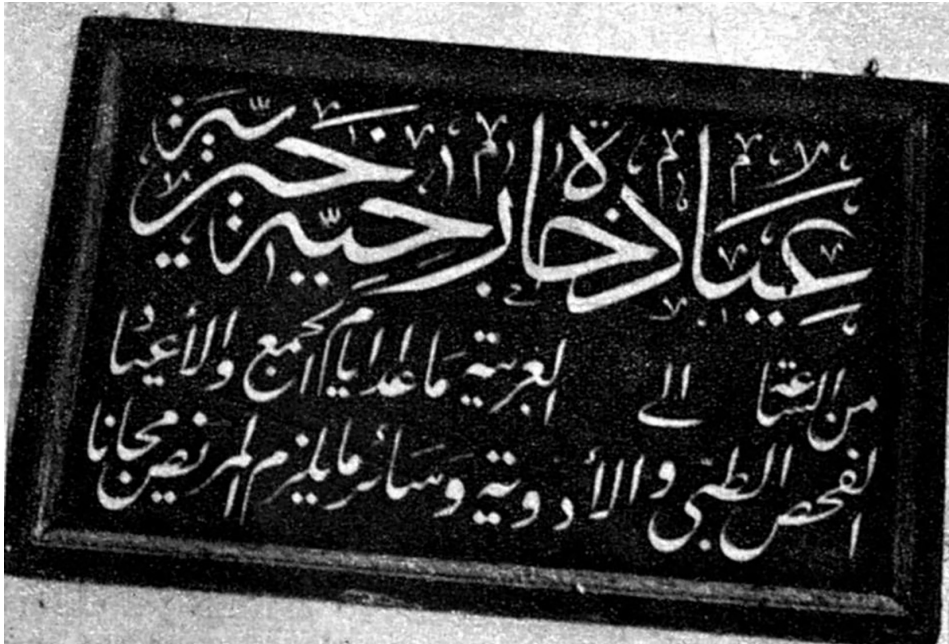 عيادة خارجية خيرية
من الساعة الى العربية ما عدا ايام الجمع والأعياد
الفحص الطبي والأدوية وسائر ما يلزم المريض مجانا